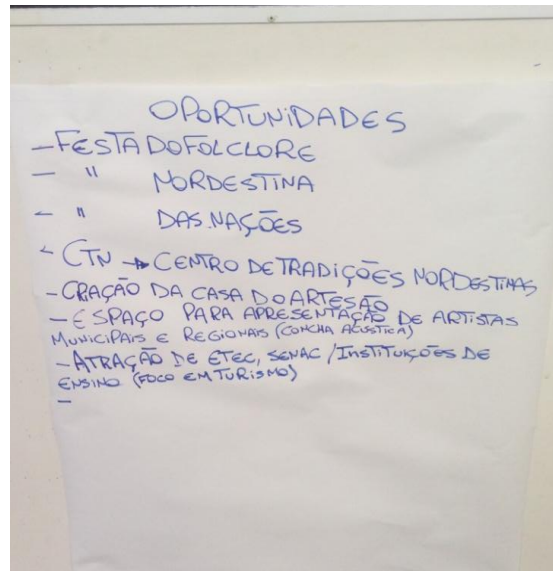 OPORTUNIDADES
- FESTA DO FOLCLORE
- " NORDESTINA
- " DAS NAÇÕES
- CTN → CENTRO DE TRADIÇÕES NORDESTINAS
- CRAÇÃO DA CASA DO ARTESÃO
- ESPAÇO PARA APRESENTAÇÃO DE ARTISTAS
MUNICIPAIS E REGIONAIS (CONCHA ACÚSTICA)
- ATRAÇÃO DE ETEC, SENAC / INSTITUIÇÕES DE
ENSINO (FOCO EM TURISMO)
-